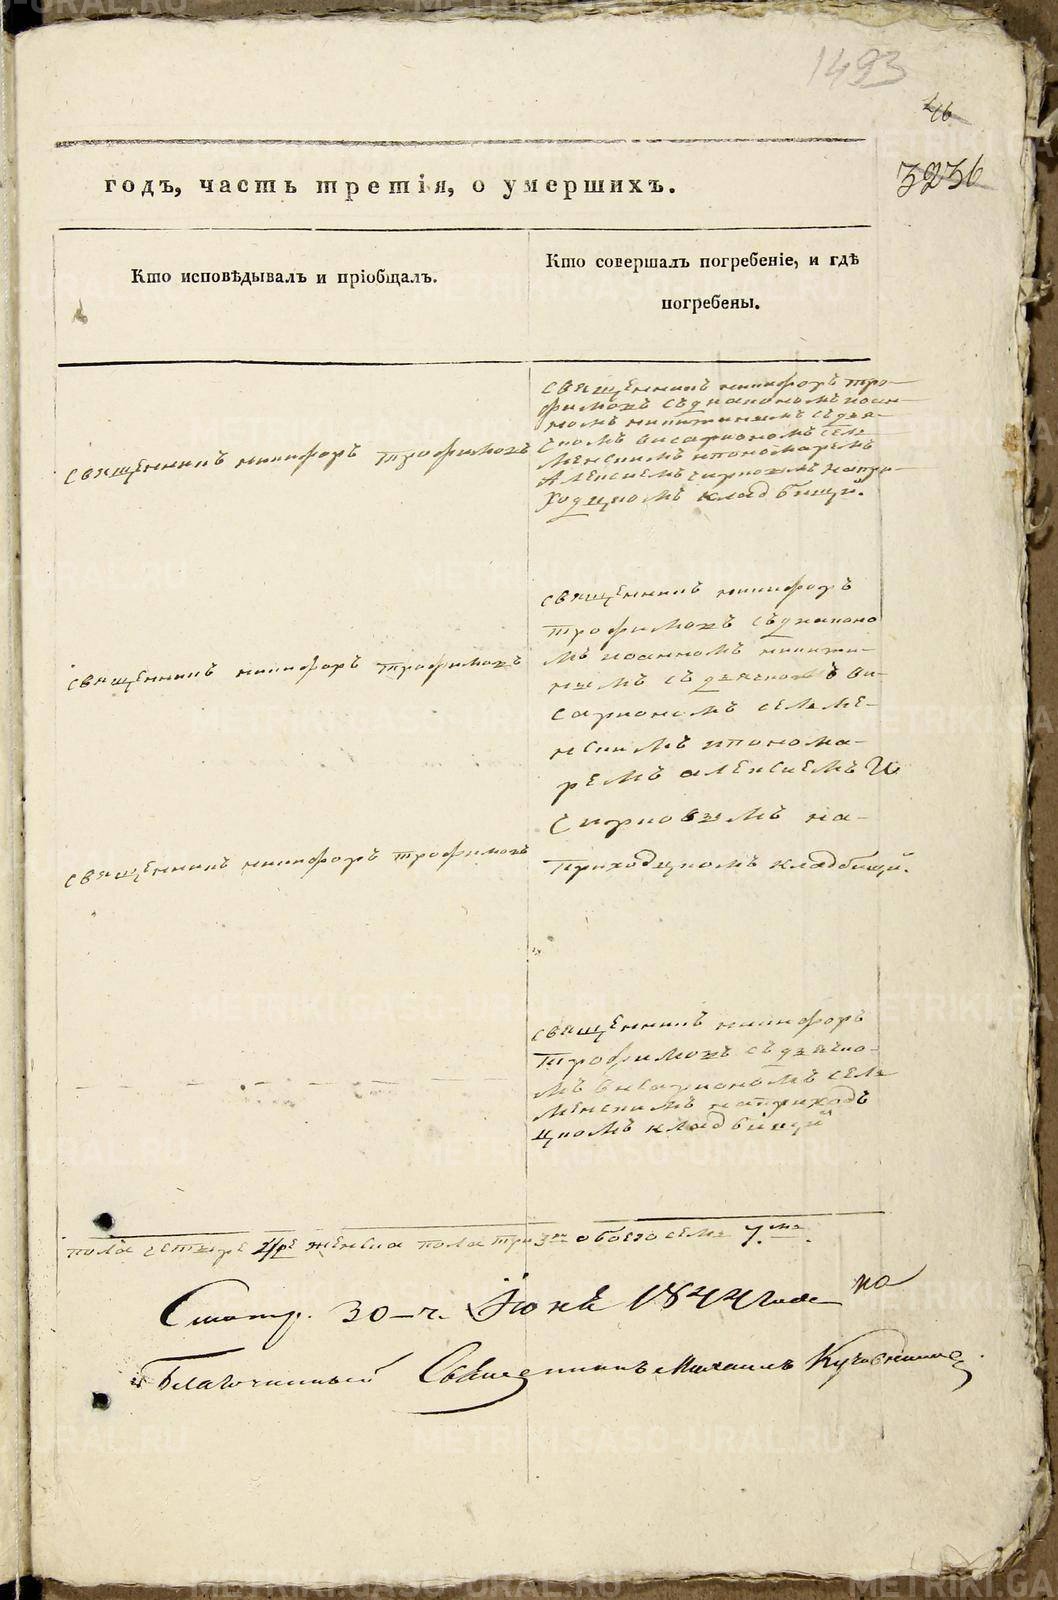 1493
46
3236
годъ, часть третія, о умершихъ.
Кто исповѣдывалъ и пріобщалъ.
Кто совершалъ погребеніе, и гдѣ
погребены.
священникъ никифоръ трофимовъ
священникъ никифоръ тро-
фимовъ съдиакономъ иоан-
номъ никитинымъ съдья-
чкомъ висарионом селе
менскимъ ипономаремъ
Алексиемъ смирновымъ напри-
ходцкомъ кладбищи.
священникъ никифоръ трофимовъ
священникъ никифоръ
трофимовъ съдиаконо
мъ иоанномъ никити-
нымъ съ дьячкомъ ви-
сарионом селеме-
нскимъ ипонома-
ремъ алексиемъ
смирновымъ на-
приходцкомъ кладбищи.
священникъ никифоръ трофимовъ
священникъ никифоръ
трофимовъ съдьячко-
мъ висарионом селе
менскимъ наприходъ
цкомъ кладбищи
пола четыре 4ре женска пола три 3ри обоего семь 7мь.
Смотр. 30-ч. Іюнѣ 1844 года
Благочинный Священникъ Михаилъ
METRIKI.GASO-URAL.RU